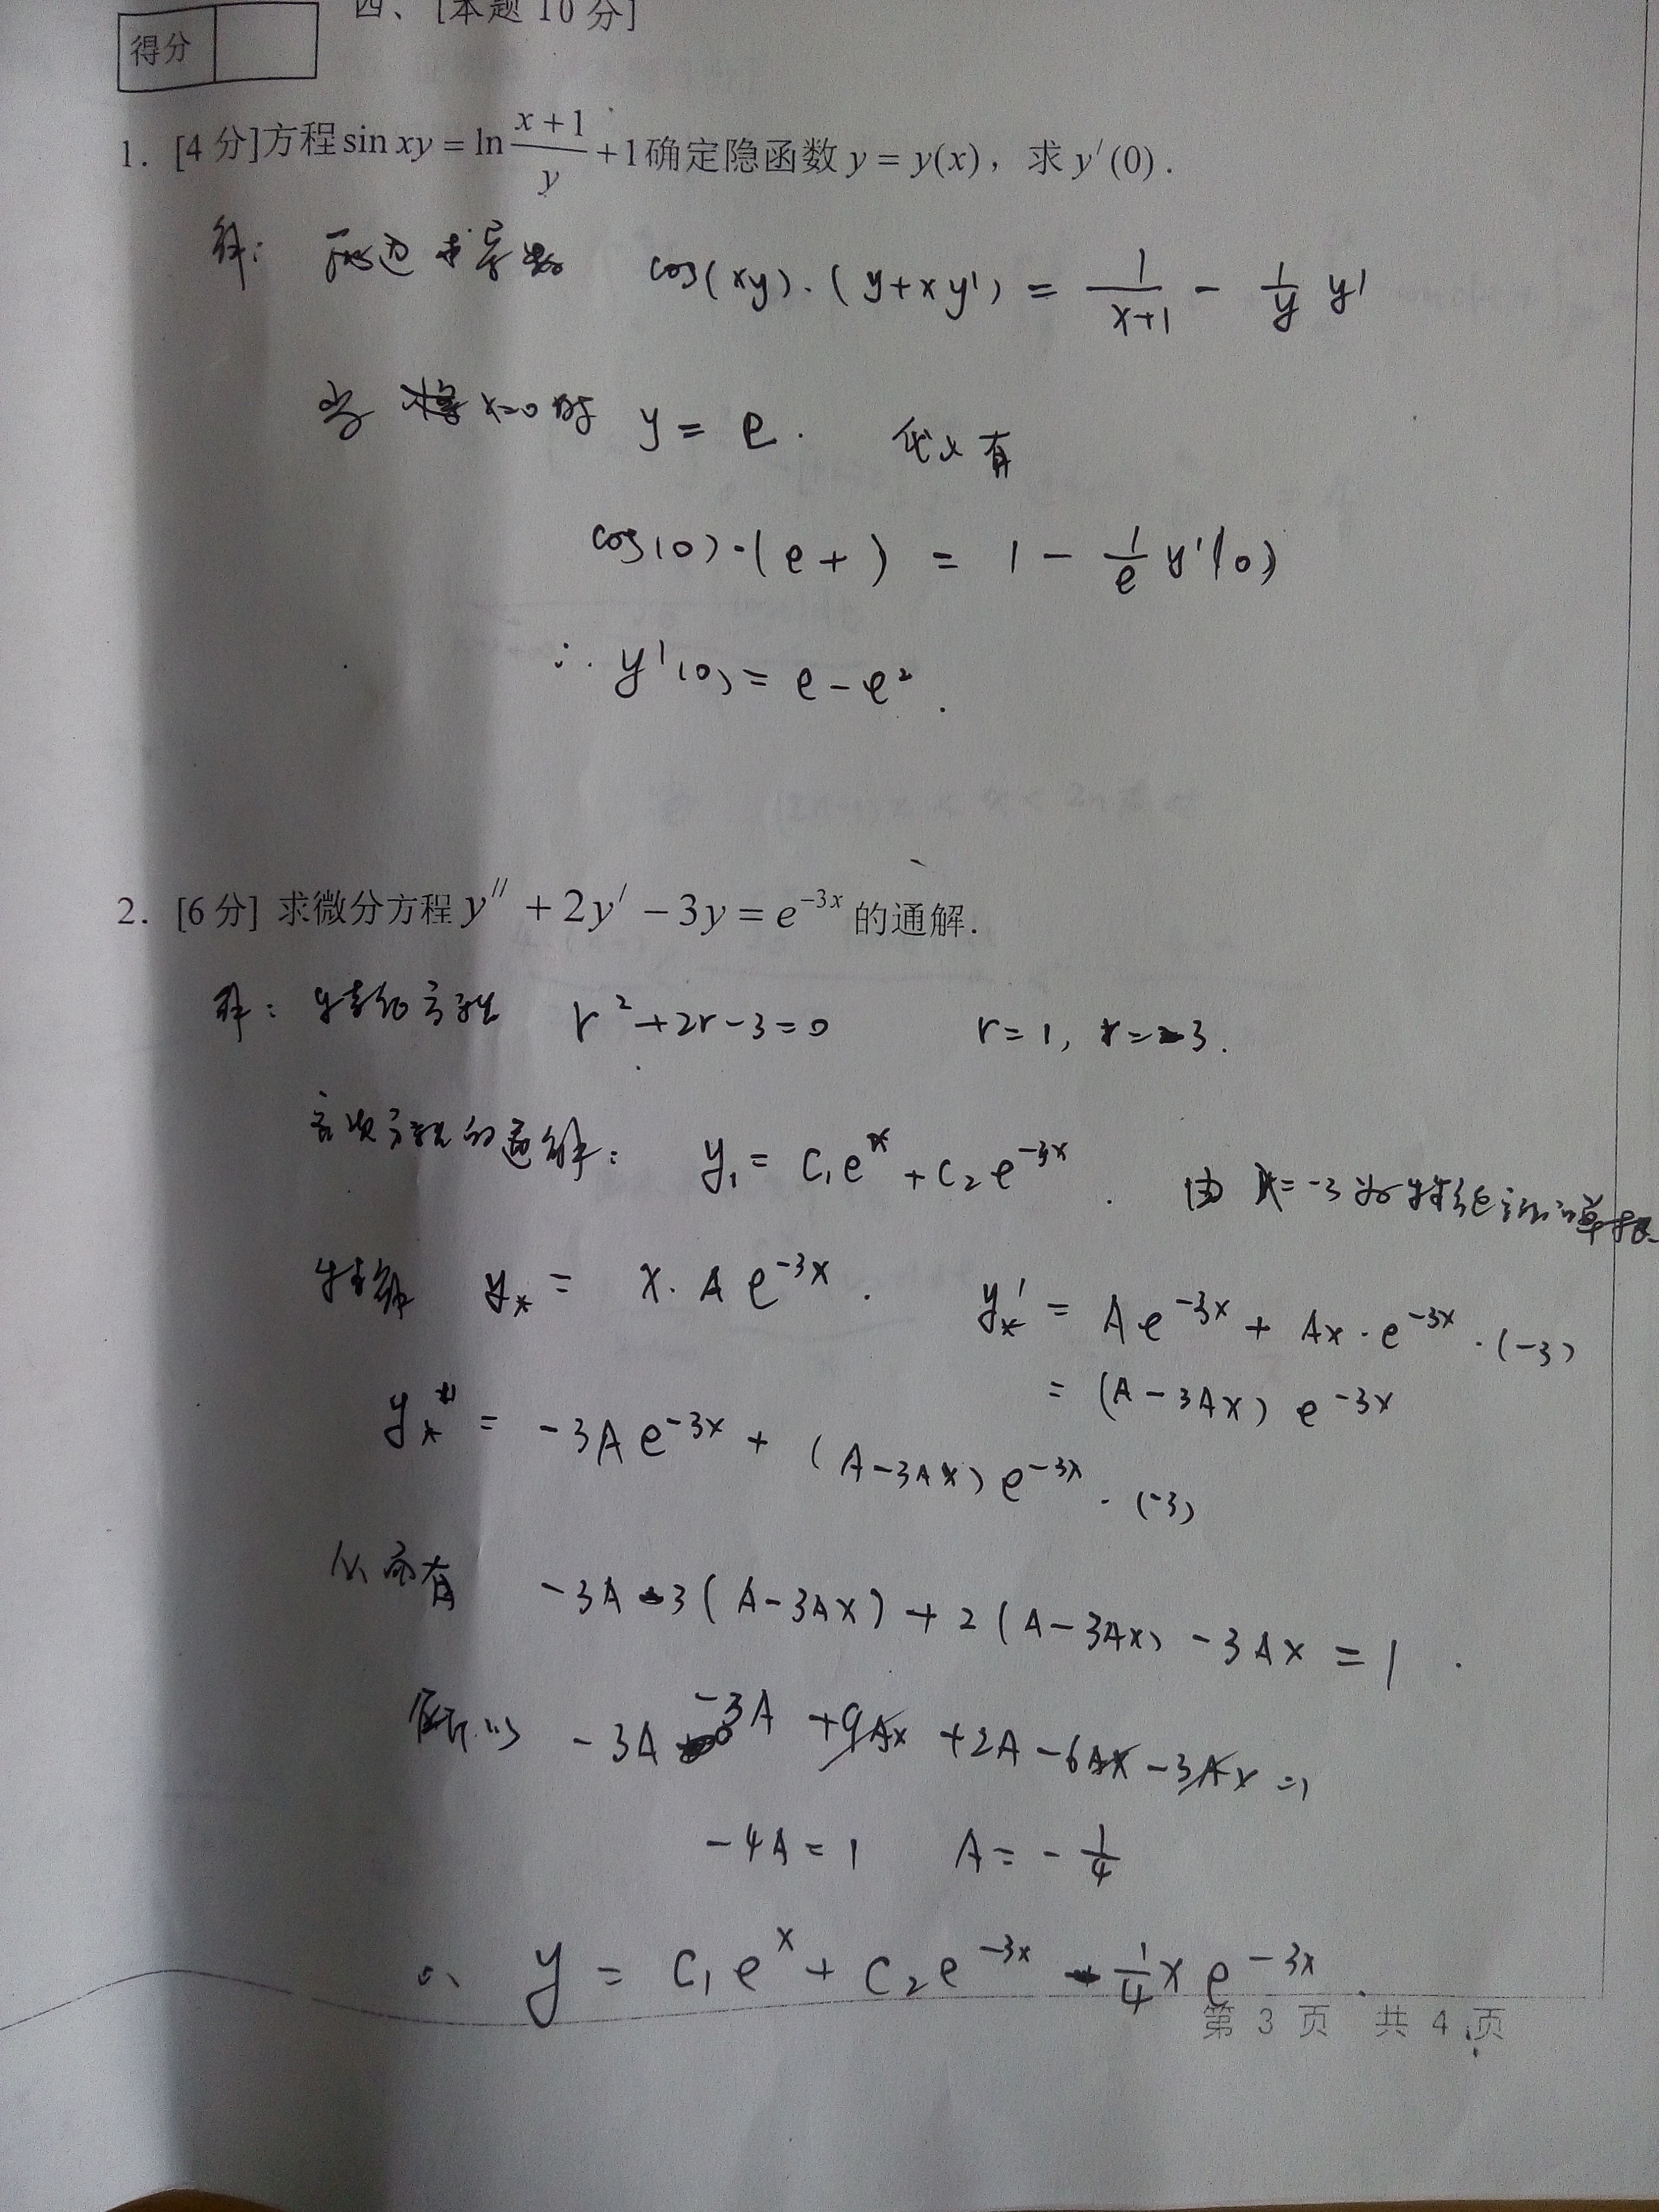 四、[本题 10 分]
得分
1. [4 分]方程 sin xy = ln (x+1)/y + 1 确定隐函数 y = y(x)，求 y′(0).
解： 两边求导数 cos(xy)·(y+xy′) = 1/(x+1) - 1/y y′
当 x=0时 y = e. 代入有
cos(0)·(e+ ) = 1 - 1/e y′(0)
∴ y′(0) = e - e².
2. [6 分] 求微分方程 y″ + 2y′ - 3y = e^{-3x} 的通解.
解：特征方程 r²+2r-3=0 r=1, r=-3.
齐次方程的通解： y₁ = C₁e^x + C₂e^{-3x}. 由 λ=-3为特征方程的单根
特解 y* = x·Ae^{-3x}. y*′ = Ae^{-3x} + Ax·e^{-3x}·(-3)
= (A-3Ax)e^{-3x}
y*″ = -3Ae^{-3x} + (A-3Ax)e^{-3x}·(-3)
从而有 -3A-3(A-3Ax)+2(A-3Ax)-3Ax = 1.
所以 -3A -3A +9Ax +2A -6Ax -3Ax =1
-4A = 1 A = -1/4
∴ y = C₁e^x + C₂e^{-3x} - 1/4 xe^{-3x}.
第 3 页 共 4 页